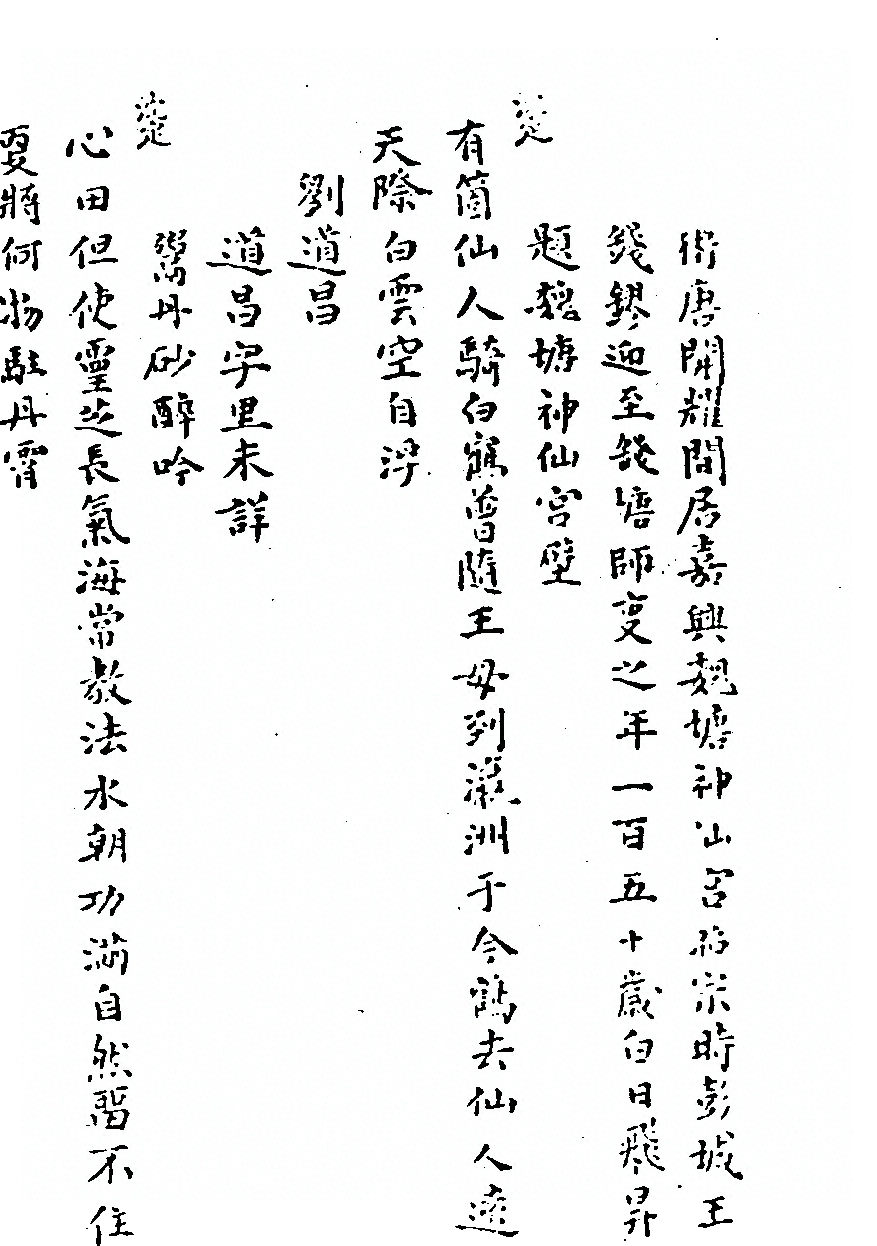 術唐開耀間居嘉興魏塘神仙宮昭宗時彭城王
錢鏐迎至錢塘師叟之年一百五十歲白日飛昇
題魏塘神仙宮壁
有箇仙人騎白鶴曾隨王母到瀛洲于今鶴去仙人遠
天際白雲空自浮
劉道昌
道昌字里未詳
鬻丹砂醉吟
心田但使靈芝長氣海常教法水朝功滿自然留不住
更將何物駐丹霄